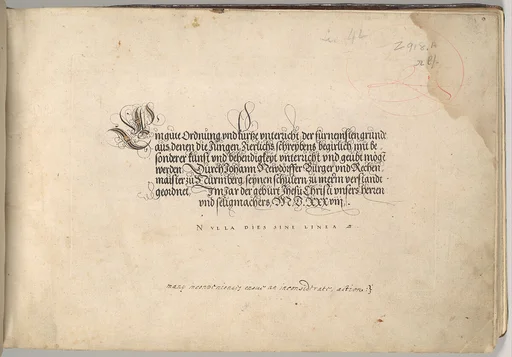 Ein gute Ordnung, und kurtze unterricht, der furnemsten grunde
aus denen die Jungen, Zierlichs schreybens begirlich, mit be-
sonderer kunst und behendigkeyt unterricht und geubt mögen
werden. Durch Johann Newdörffer, Burger und Rechen-
maister zu Nürmberg, seynen schulern zu merern verstandt
geordnet. Im Jar der geburt Jhesu Christi unsers herren
und seligmachers, M.D.XXXVIII.
NVLLA DIES SINE LINEA
many inconveniencs